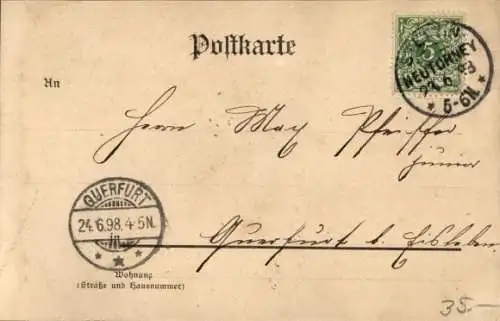 Postkarte
5
STETTIN
NEUTORNEY
6 98
* 5-6N. *
An
Herrn Max Pfeiffer
junior
QUERFURT
24.6.98.4-5N.
Querfurt b. Eisleben
Wohnung
(Straße und Hausnummer)
35.-